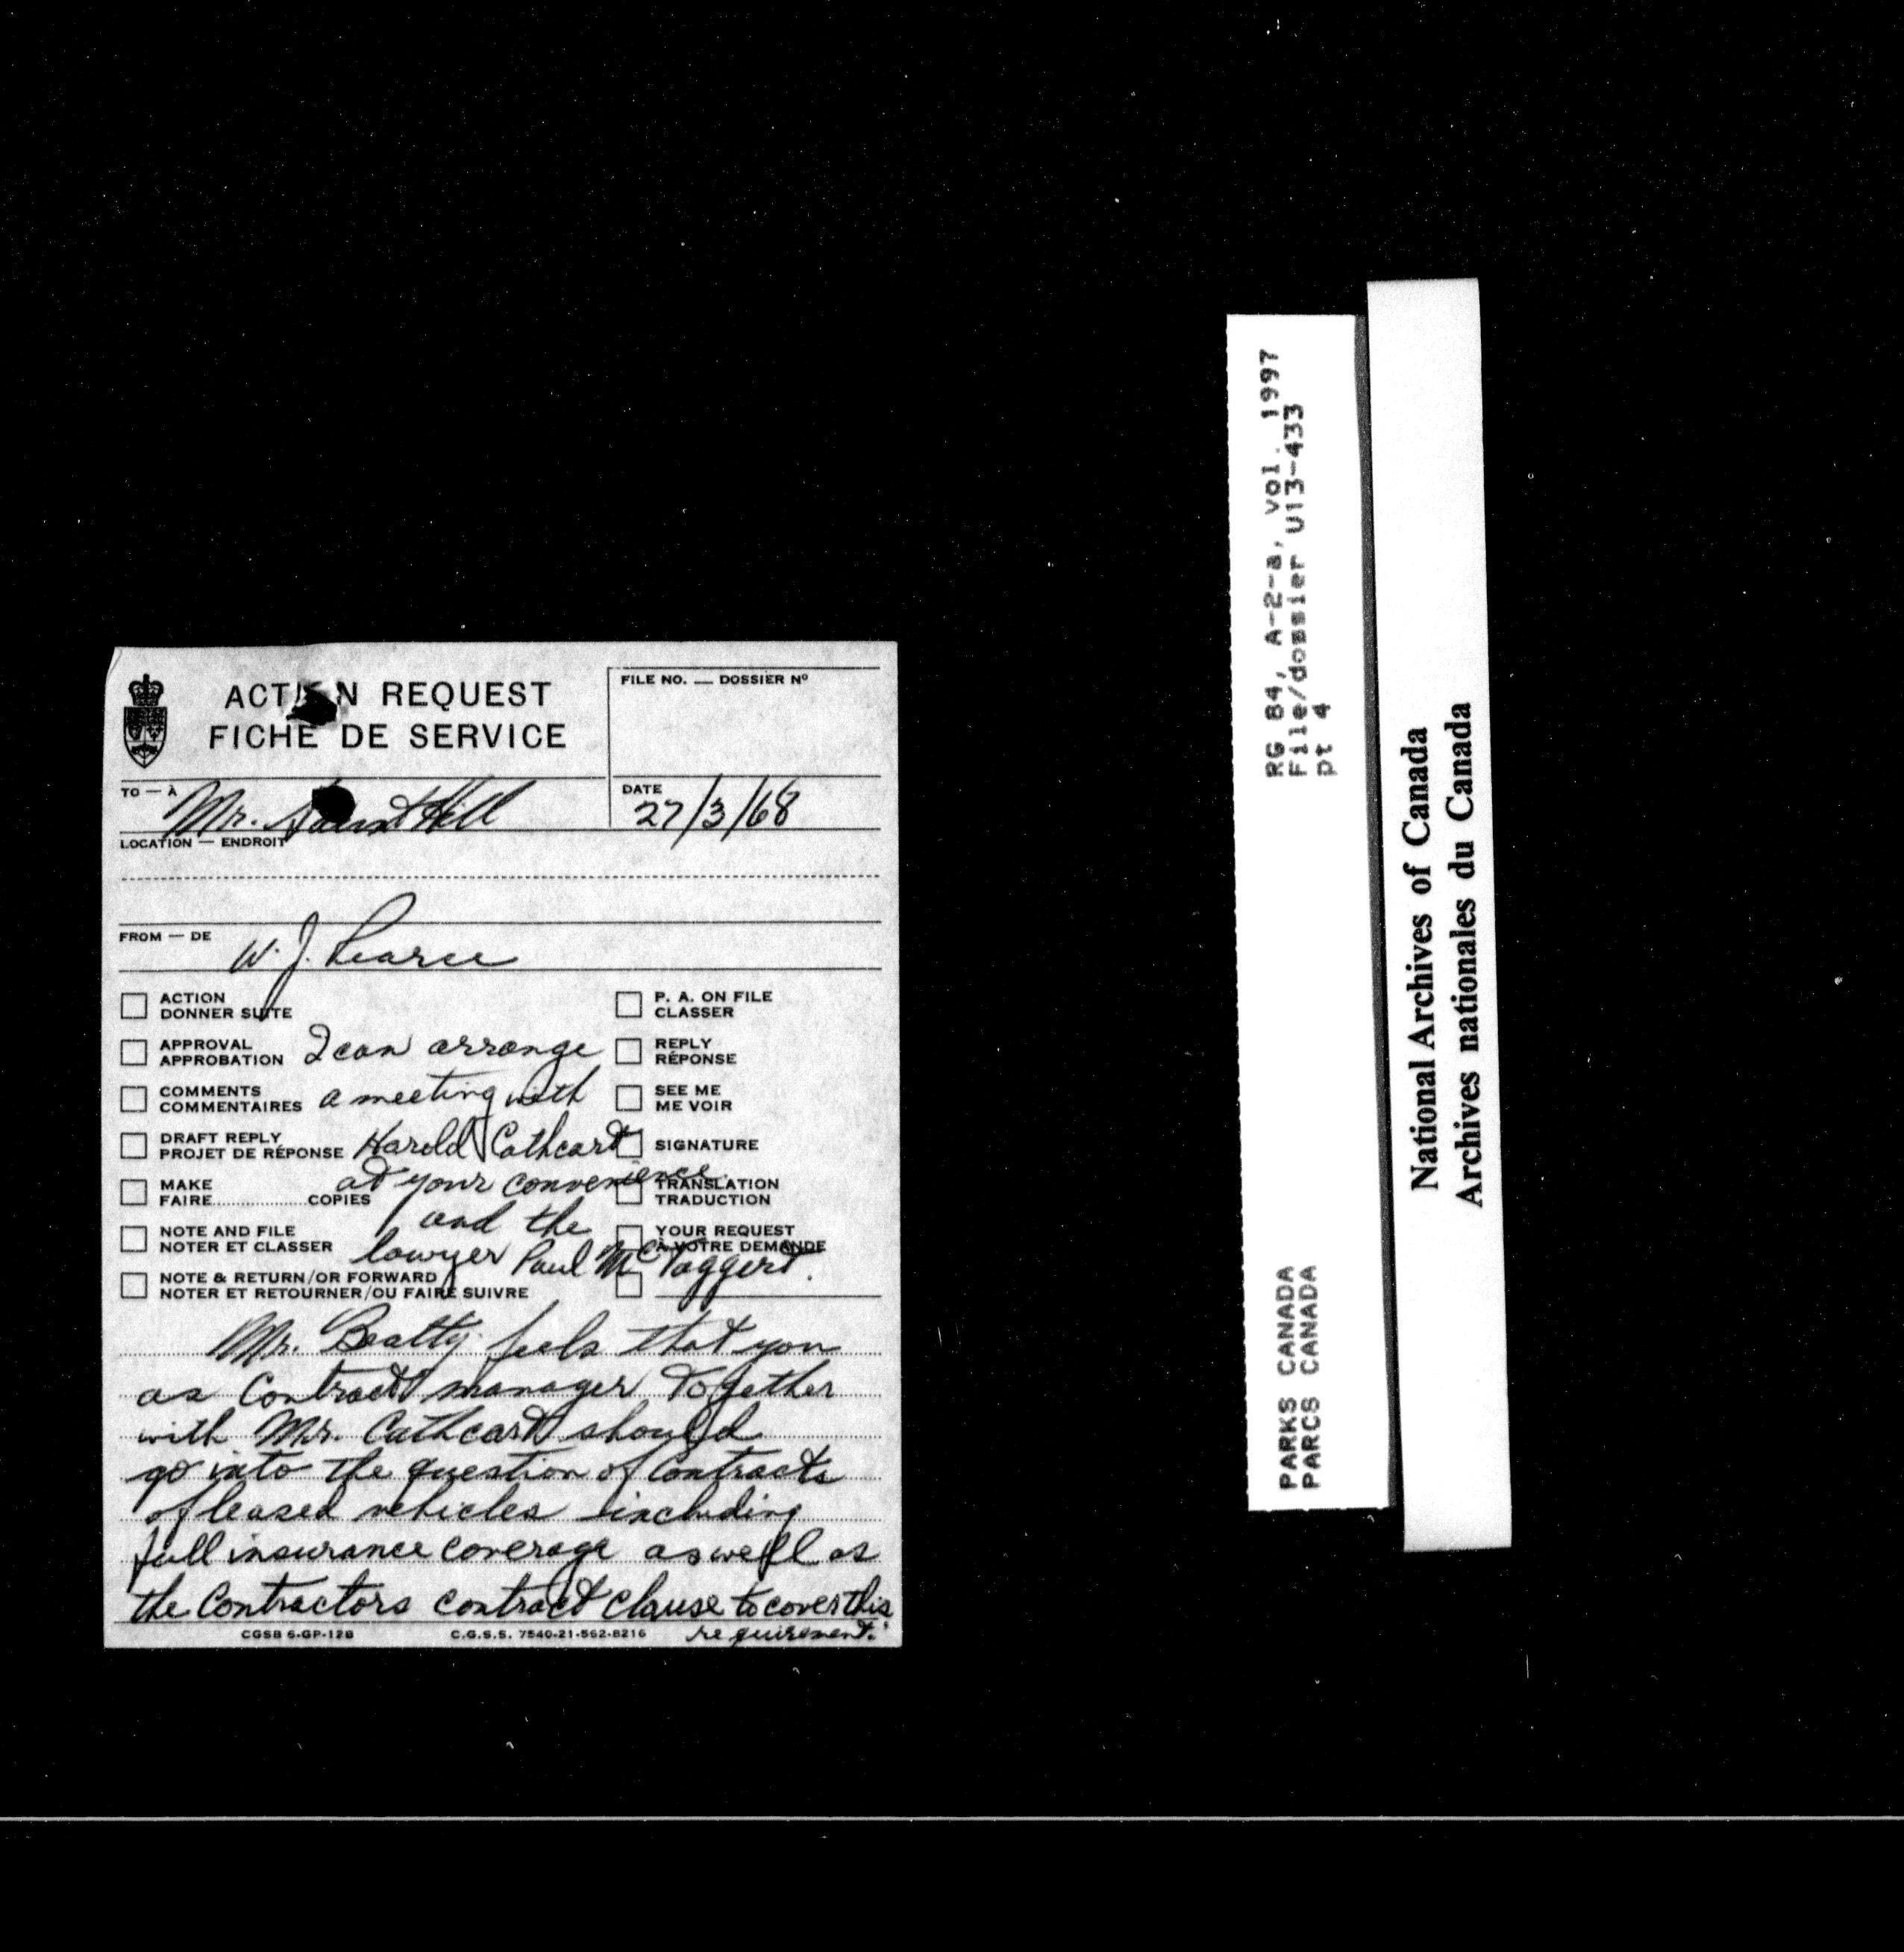 ACTION REQUEST
FICHE DE SERVICE
FILE NO. — DOSSIER Nº
TO — À Mr. Hill
DATE 27/3/68
LOCATION — ENDROIT
FROM — DE W. J. Pearce
ACTION
DONNER SUITE
P. A. ON FILE
CLASSER
APPROVAL
APPROBATION
REPLY
RÉPONSE
COMMENTS
COMMENTAIRES
SEE ME
ME VOIR
DRAFT REPLY
PROJET DE RÉPONSE
SIGNATURE
MAKE
FAIRE COPIES
TRANSLATION
TRADUCTION
NOTE AND FILE
NOTER ET CLASSER
YOUR REQUEST
À VOTRE DEMANDE
NOTE & RETURN/OR FORWARD
NOTER ET RETOURNER/OU FAIRE SUIVRE
I can arrange
a meeting with
Harold Cathcart
at your convenience
and the
lawyer Paul McTaggert.
Mr. Beatty feels that you
as Contract manager together
with Mr. Cathcart should
go into the question of Contracts
of leased vehicles including
full insurance coverage as well as
the Contractors contract clause to cover this
requirement.
CGSB 6-GP-12B C.G.S.S. 7540-21-562-8216
RG 84, A-2-a, vol. 1997
File/dossier U13-433
pt 4
PARKS CANADA
PARCS CANADA
National Archives of Canada
Archives nationales du Canada